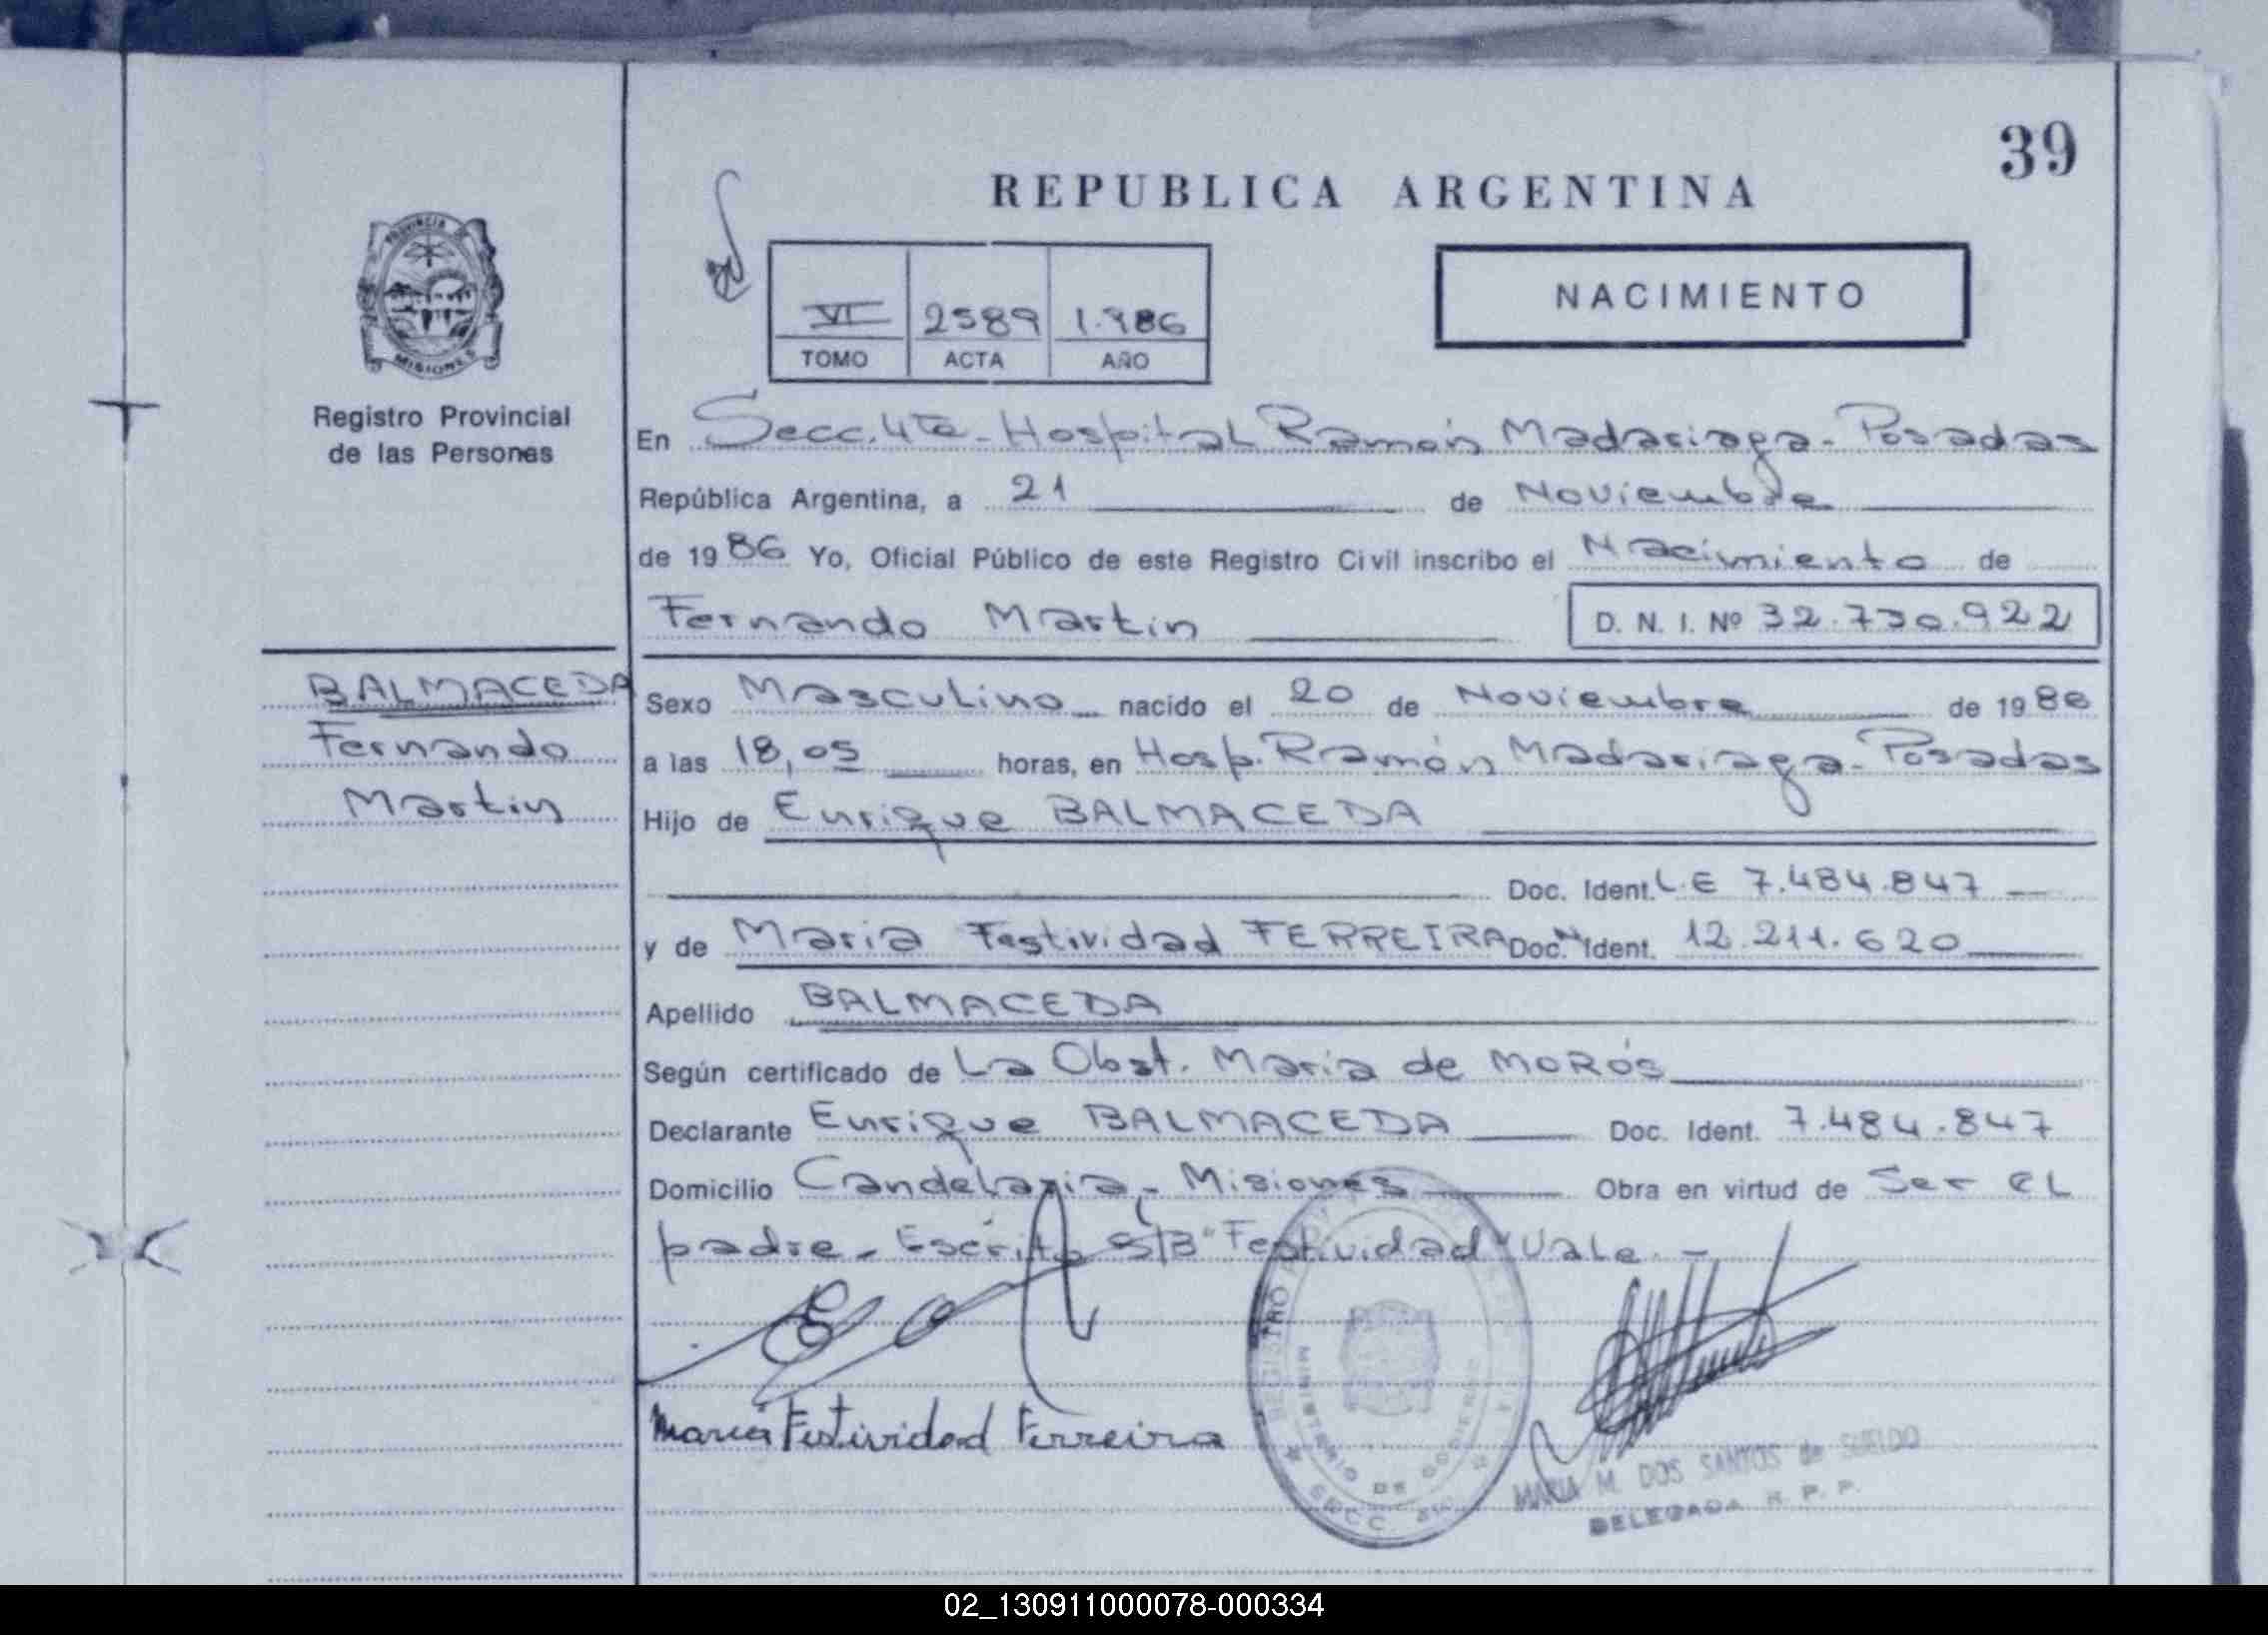 39
REPUBLICA ARGENTINA
PROVINCIA DE
MISIONES
VI 2589 1.986
TOMO ACTA AÑO
NACIMIENTO
Registro Provincial
de las Personas
En Secc. 4ta - Hospital Ramón Madariaga - Posadas
República Argentina, a 21 de Noviembre
de 1986 Yo, Oficial Público de este Registro Civil inscribo el Nacimiento de
Fernando Martin D. N. I. Nº 32.730.922
BALMACEDA
Fernando
Martin
Sexo Masculino nacido el 20 de Noviembre de 1986
a las 18,05 horas, en Hosp. Ramón Madariaga - Posadas
Hijo de Enrique BALMACEDA
Doc. Ident. L.E 7.484.847
y de Maria Festividad FERREIRA Doc. Ident. 12.211.620
Apellido BALMACEDA
Según certificado de La Obst. Maria de MORÓS
Declarante Enrique BALMACEDA Doc. Ident. 7.484.847
Domicilio Candelaria - Misiones Obra en virtud de Ser el
padre - Escrito S/B "Festividad" Vale. -
Maria Festividad Ferreira
REGISTRO
MINISTERIO DE GOBIERNO
SECC. 4ta
MARIA M. DOS SANTOS de SUELDO
DELEGADA R. P. P.
02_130911000078-000334